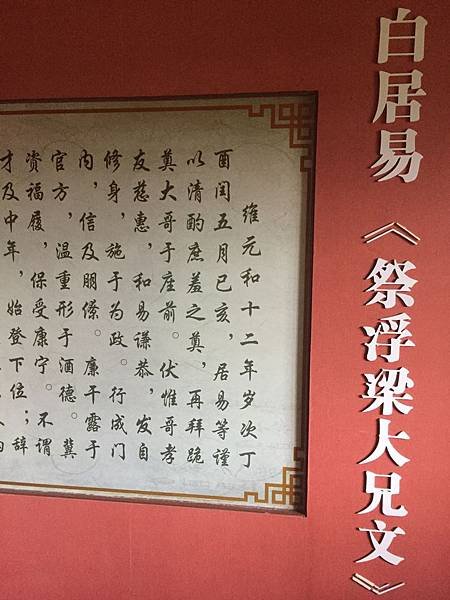 白居易《祭浮梁大兄文》
维元和十二年岁次丁
酉闰五月已亥，居易等谨
以清酌庶羞之奠，再拜跪
奠大哥于座前。伏惟哥孝
友慈惠，和易谦恭，发自
修身，施于为政。行成门
内，信及朋僚。廉干露于
官方，温重形于酒德。冀
资福履，保受康宁。不谓
才及中年，始登下位；辞